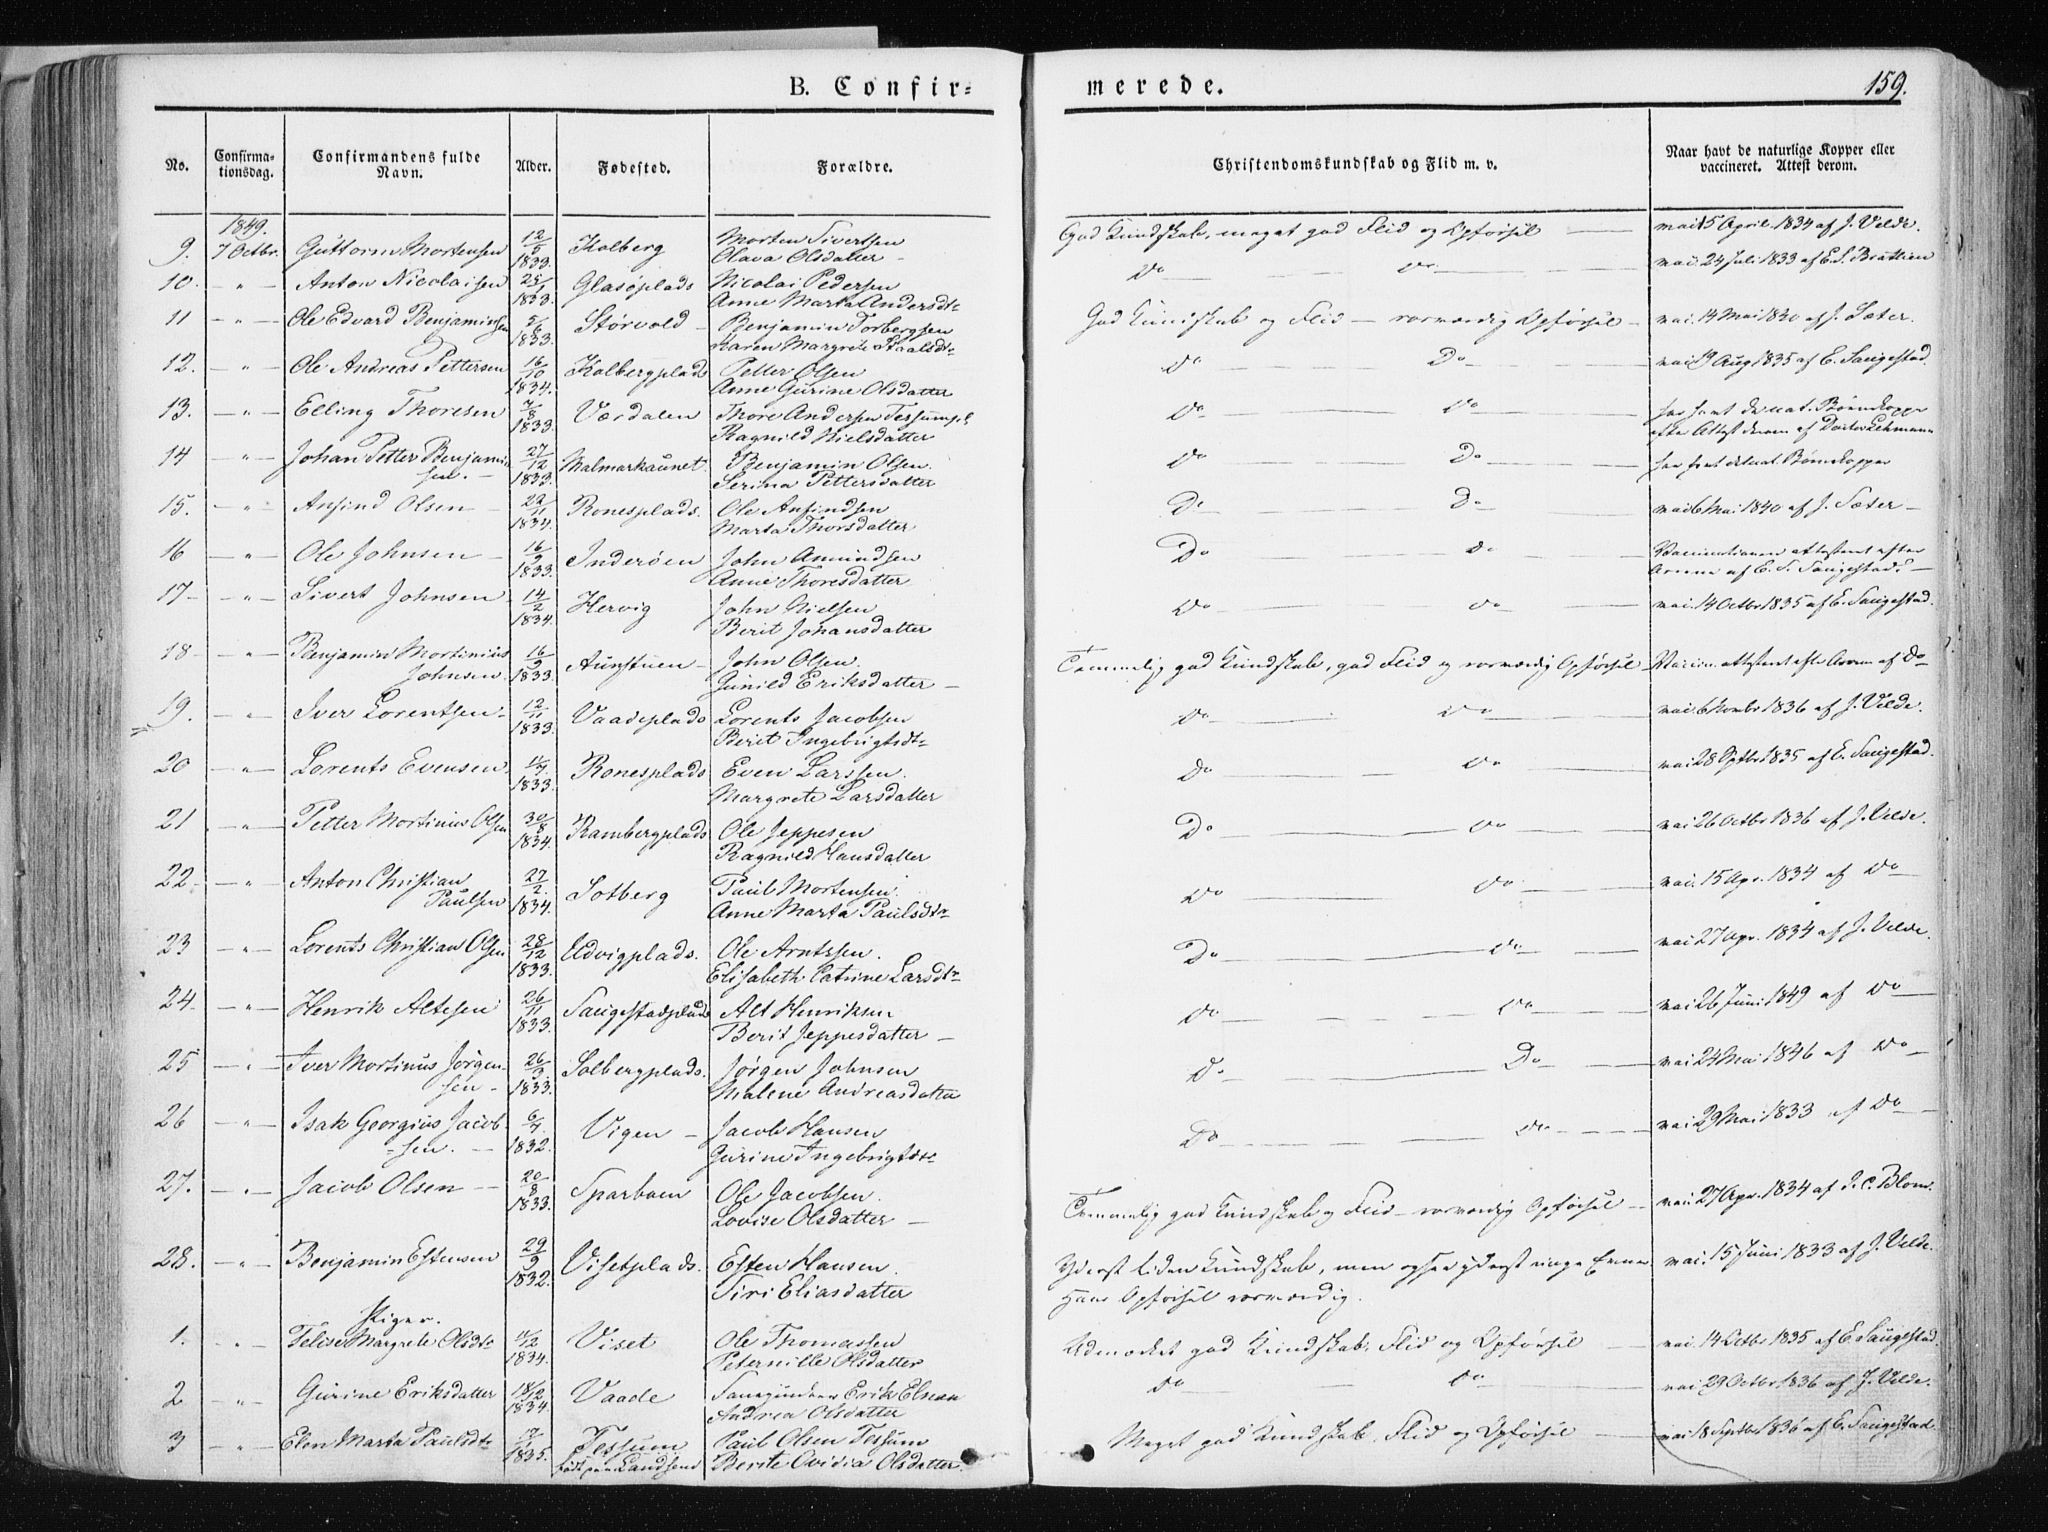 B. Confir-
merede.
159.
No.
Confirma-
tionsdag.
Confirmandens fulde
Navn.
Alder.
Fødested.
Forældre.
Christendomskundskab og Flid m. v.
Naar havt de naturlige Kopper eller
vaccineret. Attest derom.
1849.
9. 7 Octbr. Guttorm Mortensen 12/5 1833. Holberg Morten Sivertsen
Olava Olsdatter
God Kundskab, meget god Flid og Opførsel vac. 15 April 1834 af J. Velde.
10. " Anton Nicolaisen 25/1 1833. Glasøplads Nicolai Pedersen
Anne Marta Andersdtr
Do Do vac. 24 Juli 1833 af E. S. Brattien
11 " Ole Edvard Benjaminsen 5/6 1833. Størvold Benjamin Torbergsen
Karen Margrete Staalsdtr
God Kundskab og Flid – sorværdig Opførsel vac. 14 Mai 1840 af J. Sæter.
12. " Ole Andreas Pettersen 16/10 1834. Holbergplads Petter Olsen
Anne Gurine Olsdatter
Do Do vac. 13 Aug 1835 af E. Saugestad.
13. " Elling Thoresen 7/8 1833. Værdalen Thore Andersen Tessumpl
Ragnild Nielsdatter
Do Do har havt de nat. Børnekopper
efter Attest derom af Doctor Lehmann
14 " Johan Petter Benjamin-
sen. 27/12 1833. Malmarkaunet. Benjamin Olsen.
Serina Pettersdatter
Do Do har havt de nat. Børnekopper
15. " Anfind Olsen 22/11 1834. Ronesplads. Ole Anfindsen
Marta Thorsdatter
Do Do vac. 6 Mai 1840 af J. Sæter
16 " Ole Johnsen 16/9 1833. Inderøen John Amundsen
Anne Thoresdatter
Do Do Vaccinationen attesteret efter
Arrene af E. S. Saugestad.
17 " Sivert Johnsen 14/2 1834 Hervig John Nielsen
Berit Johansdatter
Do Do vac. 14 Octbr 1835 af E. Saugestad.
18 " Benjamin Mortinius
Johnsen 16/9 1833. Aunstuen John Olsen.
Gunild Eriksdatter
Temmelig god Kundskab, god Flid og sorværdig Opførsel Vaccin. attesteret efter Arrene af Do
19. " Iver Lorentsen 12/11 1833. Vaadeplads Lorents Jacobsen
Berit Ingebrigtsdtr
Do Do vac. 6 Novbr 1836 af J. Velde.
20 " Lorents Evensen 1833. Ronesplads Even Larssen.
Margrete Larsdatter
Do Do vac. 28 Sptbr 1835 af E. Saugestad.
21 " Petter Mortinus Olsen 30/8 1834. Rambergplads Ole Jeppesen
Ragnild Hansdatter
Do Do vac. 26 Octbr 1836 af J. Velde.
22 " Anton Christian
Paulsen 27/2 1834. Solberg Paul Mortensen.
Anne Marta Paulsdtr
Do Do vac. 15 Apr. 1834 af Do
23 " Lorents Christian Olsen 28/12 1833. Eldvigplads. Ole Arntssen.
Elisabeth Catrine Larsdtr
Do Do vac. 27 Apr. 1834 af J. Velde.
24. " Henrik Altesen 26/11 1833. Saugestadplads Alt Henriksen
Berit Jeppesdatter
Do Do vac. 26 Juni 1849 af Do
25 " Iver Mortinus Jørgen-
sen 26/3 1833. Solbergplads. Jørgen Johnsen
Malene Andreasdatter
Do Do vac. 24 Mai 1846 af Do
26 " Isak Georgius Jacob-
sen. 6/7 1832. Vigen Jacob Hansen
Gurine Ingebrigtsdtr
Do Do vac. 29 Mai 1833 af Do
27. " Jacob Olsen 20/8 1833. Sparbuen Ole Jacobsen.
Lovise Olsdatter
Temmelig god Kundskab og Flid – sorværdig Opførsel vac. 27 Apr. 1834 af J. C. Blom.
28. " Benjamin Estensen 29/9 1832. Visetplads. Esten Hansen.
Siri Eliasdatter
Yderst liden Kundskab, men ogsaa yderst ringe Evner vac. 15 Juni 1833 af J. Velde.
Hans Opførsel sorværdig.
Piger.
1. " Felise Margrete Olsdtr 11/12 1834. Viset Ole Thomassen
Peternille Olsdatter
Udmærket god Kundskab, Flid og Opførsel vac. 14 Octbr 1835 af E. Saugestad.
2 " Gurine Eriksdatter 18/12 1834. Vaade Erik Elnan
Andrea Olsdatter
Do Do vac. 29 Octbr. 1836 af J. Velde.
3 " Elen Marta Paulsdtr 1835. Tessum
født paa Landsem Paul Olsen Tessum
Berete Ovidia Olsdatter.
Meget god Kundskab, Flid og Opførsel vac. 18 Septbr 1836 af E. Saugestad.